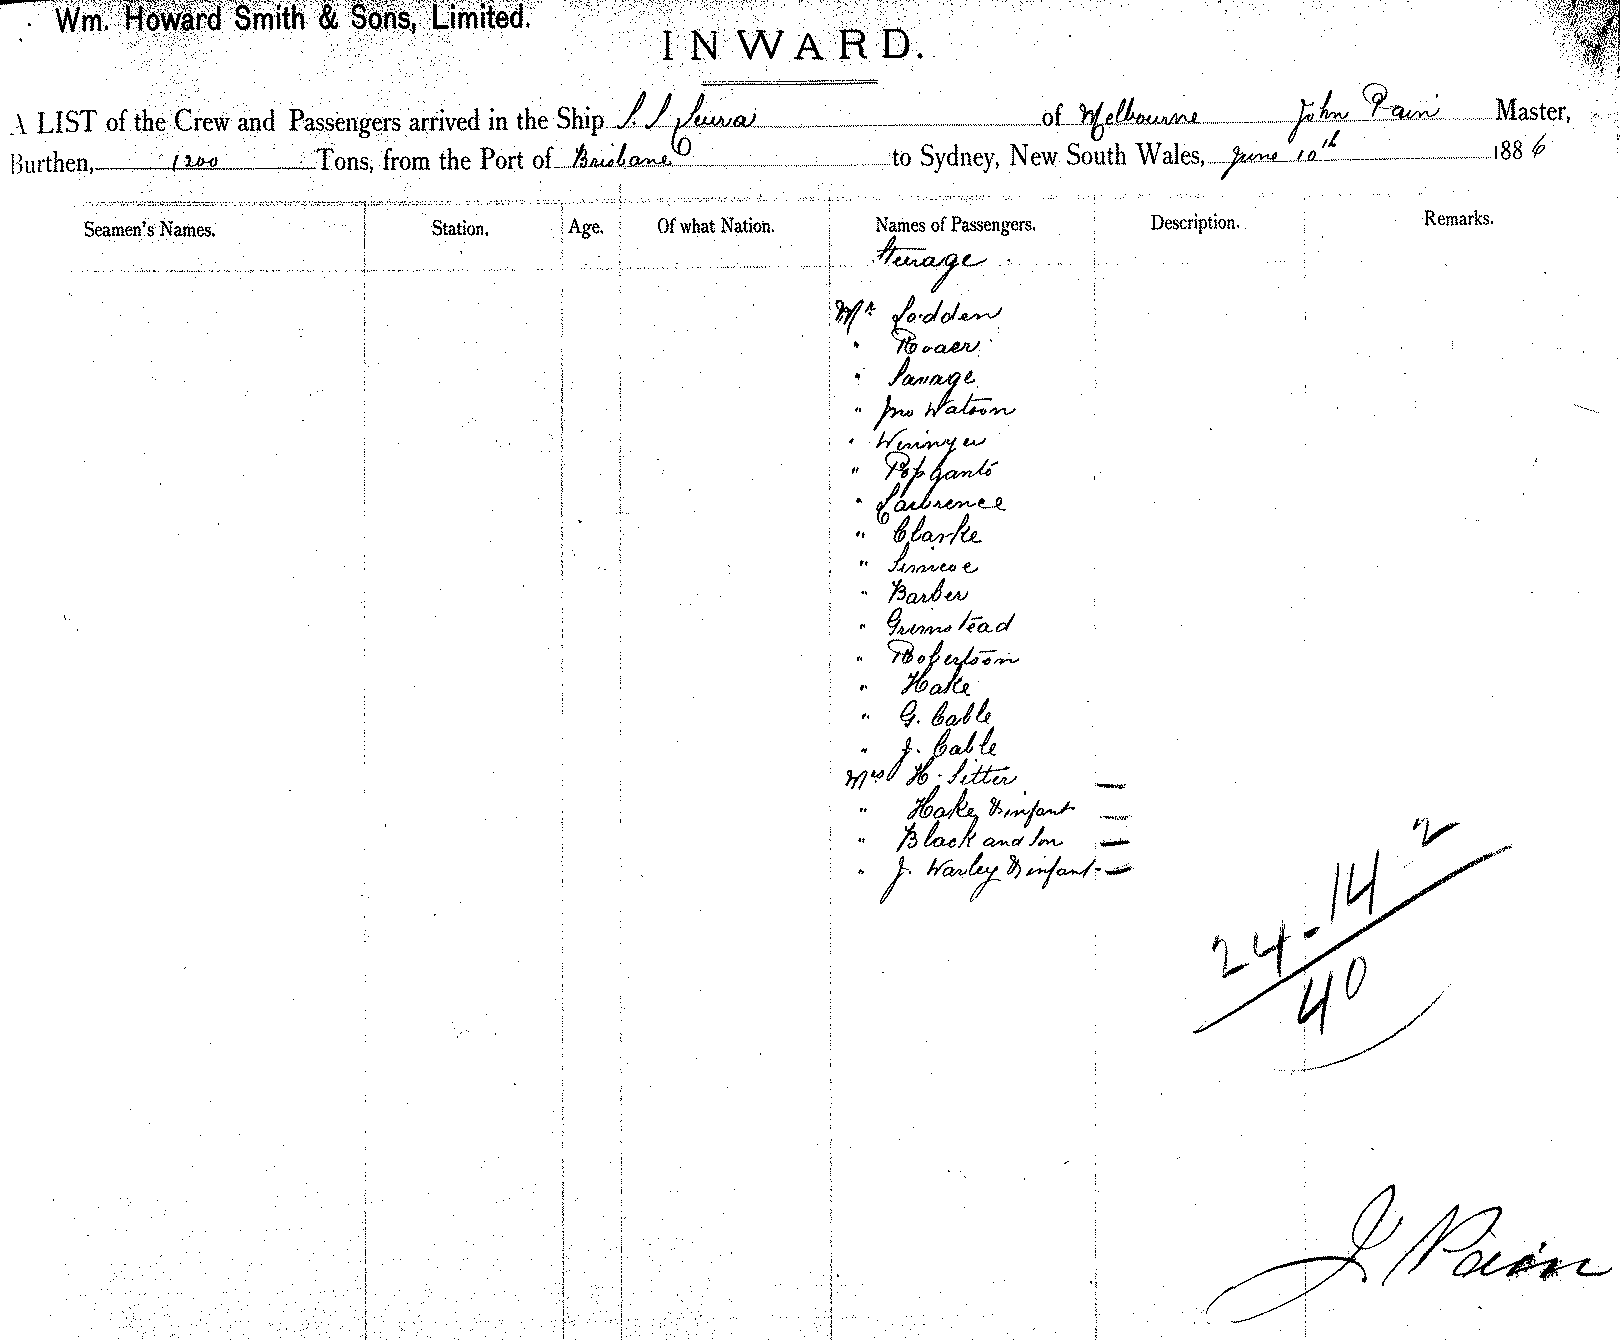 Wm. Howard Smith & Sons, Limited.
INWARD.
A LIST of the Crew and Passengers arrived in the Ship S. S. of Melbourne John Pain Master,
Burthen, 1200 Tons, from the Port of Brisbane to Sydney, New South Wales, June 10th 1886
Seamen's Names. Station. Age. Of what Nation. Names of Passengers. Description. Remarks.
Steerage
Mr Lodden
"
" Savage
" Jno Watson
"
"
" Lawrence
" Clarke
" Simcoe
" Barber
" Grimstead
" Robertson
" Hake
" G. Cable
" J. Cable
Mrs H. Sitter —
" Hake & infant —
" Black and Son —
" J. Warley & infant —
2
24 - 14
40
J Pain